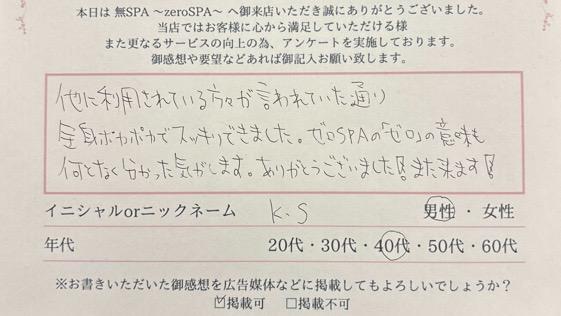 本日は 無SPA ～zeroSPA～ へ御来店いただき誠にありがとうございました。
当店ではお客様に心から満足していただける様
また更なるサービスの向上の為、アンケートを実施しております。
御感想や要望などあれば御記入お願い致します。
他に利用されている方々が言われていた通り
全身ポカポカでスッキリできました。ゼロSPAの「ゼロ」の意味も
何となく分かった気がします。ありがとうございました!!また来ます!
イニシャルorニックネーム K.S 男性・女性
年代 20代・30代・40代・50代・60代
※お書きいただいた御感想を広告媒体などに掲載してもよろしいでしょうか？
☑掲載可 □掲載不可